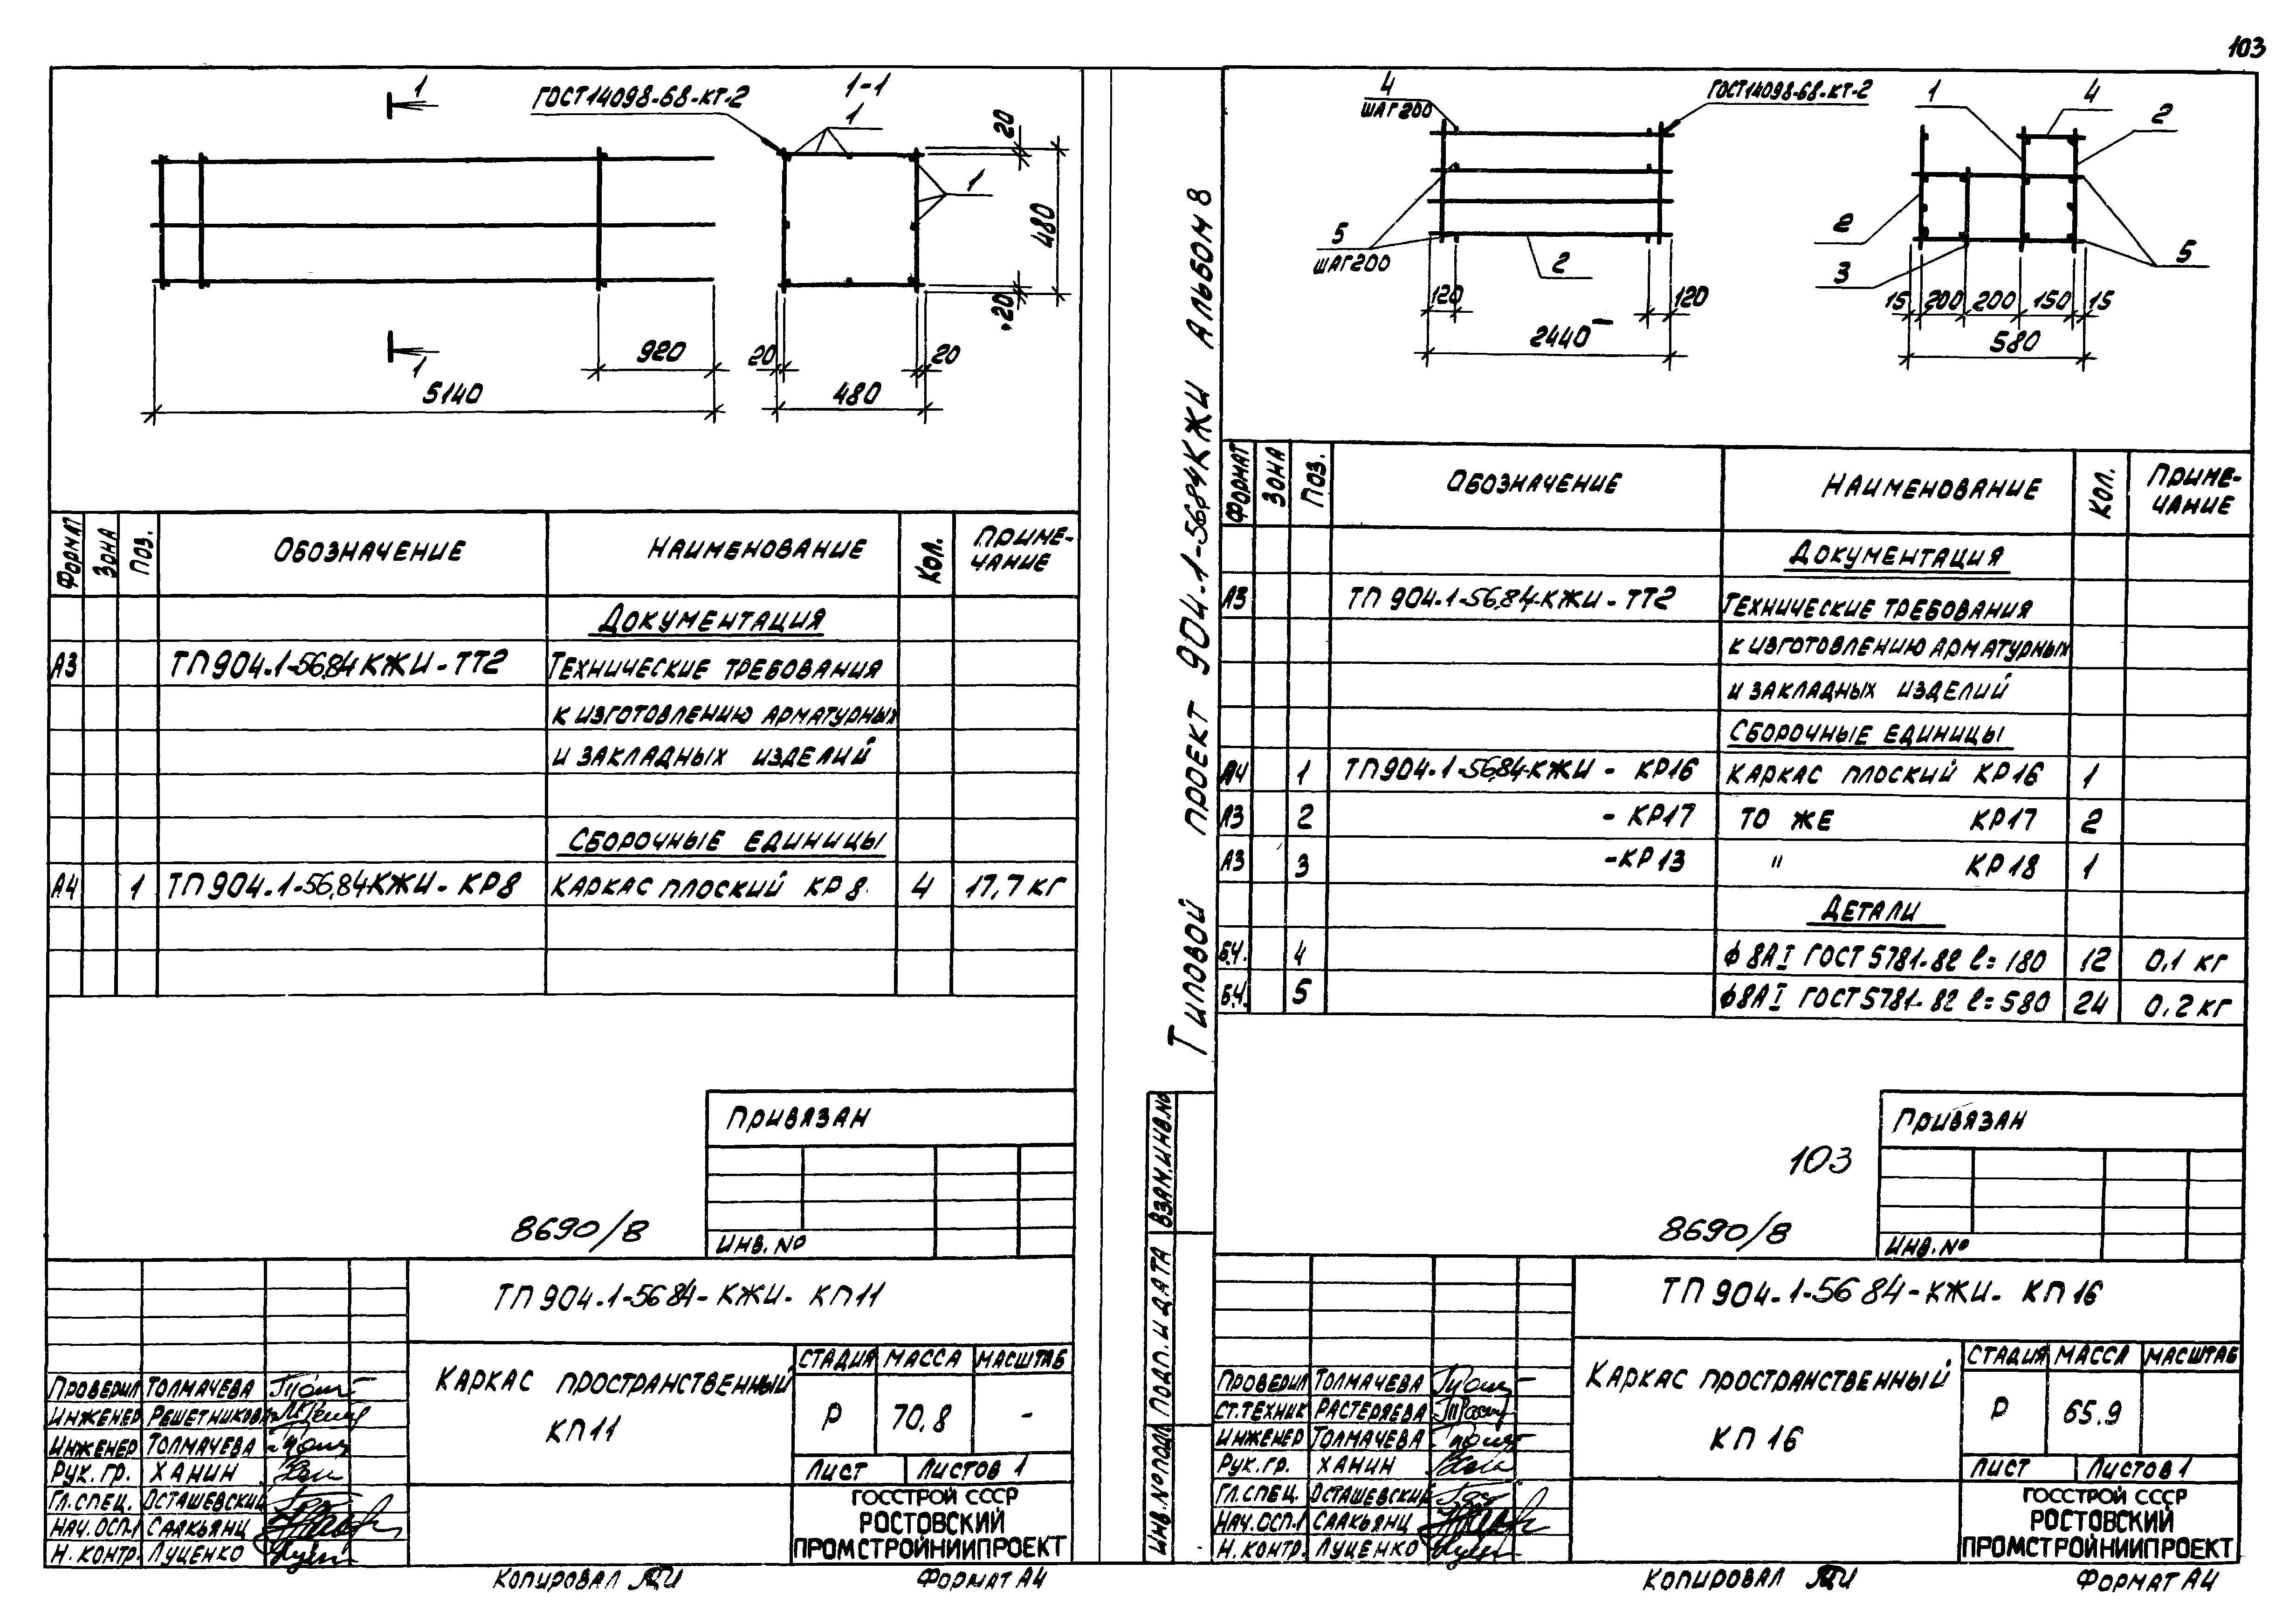 103
1
ГОСТ 14098-68-КТ-2
1-1
1
1
20
480
20
1
920
5140
20
20
480
ФОРМАТ ЗОНА ПОЗ. ОБОЗНАЧЕНИЕ НАИМЕНОВАНИЕ КОЛ. ПРИМЕ-
ЧАНИЕ
ДОКУМЕНТАЦИЯ
А3 ТП 904.1-56.84 КЖИ-ТТ2 ТЕХНИЧЕСКИЕ ТРЕБОВАНИЯ
К ИЗГОТОВЛЕНИЮ АРМАТУРНЫХ
И ЗАКЛАДНЫХ ИЗДЕЛИЙ
СБОРОЧНЫЕ ЕДИНИЦЫ
А4 1 ТП 904.1-56.84-КЖИ-КР8 КАРКАС ПЛОСКИЙ КР8 4 17,7 КГ
ПРИВЯЗАН
ИНВ. №
8690/8
ТП 904.1-56 84-КЖИ-КП11
КАРКАС ПРОСТРАНСТВЕННЫЙ
КП11
СТАДИЯ МАССА МАСШТАБ
Р 70,8 -
ЛИСТ ЛИСТОВ 1
ГОССТРОЙ СССР
РОСТОВСКИЙ
ПРОМСТРОЙНИИПРОЕКТ
ПРОВЕРИЛ ТОЛМАЧЕВА
ИНЖЕНЕР РЕШЕТНИКОВА
ИНЖЕНЕР ТОЛМАЧЕВА
РУК. ГР. ХАНИН
ГЛ. СПЕЦ. ОСТАШЕВСКИЙ
НАЧ. ОСП-1 СААКЬЯНЦ
Н. КОНТР. ЛУЦЕНКО
КОПИРОВАЛ
ФОРМАТ А4
ТИПОВОЙ ПРОЕКТ 904.1-56.84 КЖИ АЛЬБОМ 8
ВЗАМ. ИНВ. №
ПОДП. И ДАТА
ИНВ. № ПОДЛ
4
ШАГ 200
ГОСТ 14098-68-КТ-2
5
ШАГ 200
2
120
120
2440
1
4
2
2
3
5
15 200 200 150 15
580
ФОРМАТ ЗОНА ПОЗ. ОБОЗНАЧЕНИЕ НАИМЕНОВАНИЕ КОЛ. ПРИМЕ-
ЧАНИЕ
ДОКУМЕНТАЦИЯ
А3 ТП 904.1-56.84-КЖИ-ТТ2 ТЕХНИЧЕСКИЕ ТРЕБОВАНИЯ
К ИЗГОТОВЛЕНИЮ АРМАТУРНЫХ
И ЗАКЛАДНЫХ ИЗДЕЛИЙ
СБОРОЧНЫЕ ЕДИНИЦЫ
А4 1 ТП 904.1-56.84-КЖИ - КР16 КАРКАС ПЛОСКИЙ КР16 1
А3 2 - КР17 ТО ЖЕ КР17 2
А3 3 -КР13 " КР18 1
ДЕТАЛИ
Б.Ч. 4 ϕ8АI ГОСТ 5781-82 ℓ=180 12 0,1 КГ
Б.Ч. 5 ϕ8АI ГОСТ 5781-82 ℓ=580 24 0,2 КГ
ПРИВЯЗАН
ИНВ. №
103
8690/8
ТП 904.1-56 84-КЖИ- КП 16
КАРКАС ПРОСТРАНСТВЕННЫЙ
КП 16
СТАДИЯ МАССА МАСШТАБ
Р 65.9
ЛИСТ ЛИСТОВ 1
ГОССТРОЙ СССР
РОСТОВСКИЙ
ПРОМСТРОЙНИИПРОЕКТ
ПРОВЕРИЛ ТОЛМАЧЕВА
СТ. ТЕХНИК РАСТЕРЯЕВА
ИНЖЕНЕР ТОЛМАЧЕВА
РУК. ГР. ХАНИН
ГЛ. СПЕЦ. ОСТАШЕВСКИЙ
НАЧ. ОСП-1 СААКЬЯНЦ
Н. КОНТР. ЛУЦЕНКО
КОПИРОВАЛ
ФОРМАТ А4